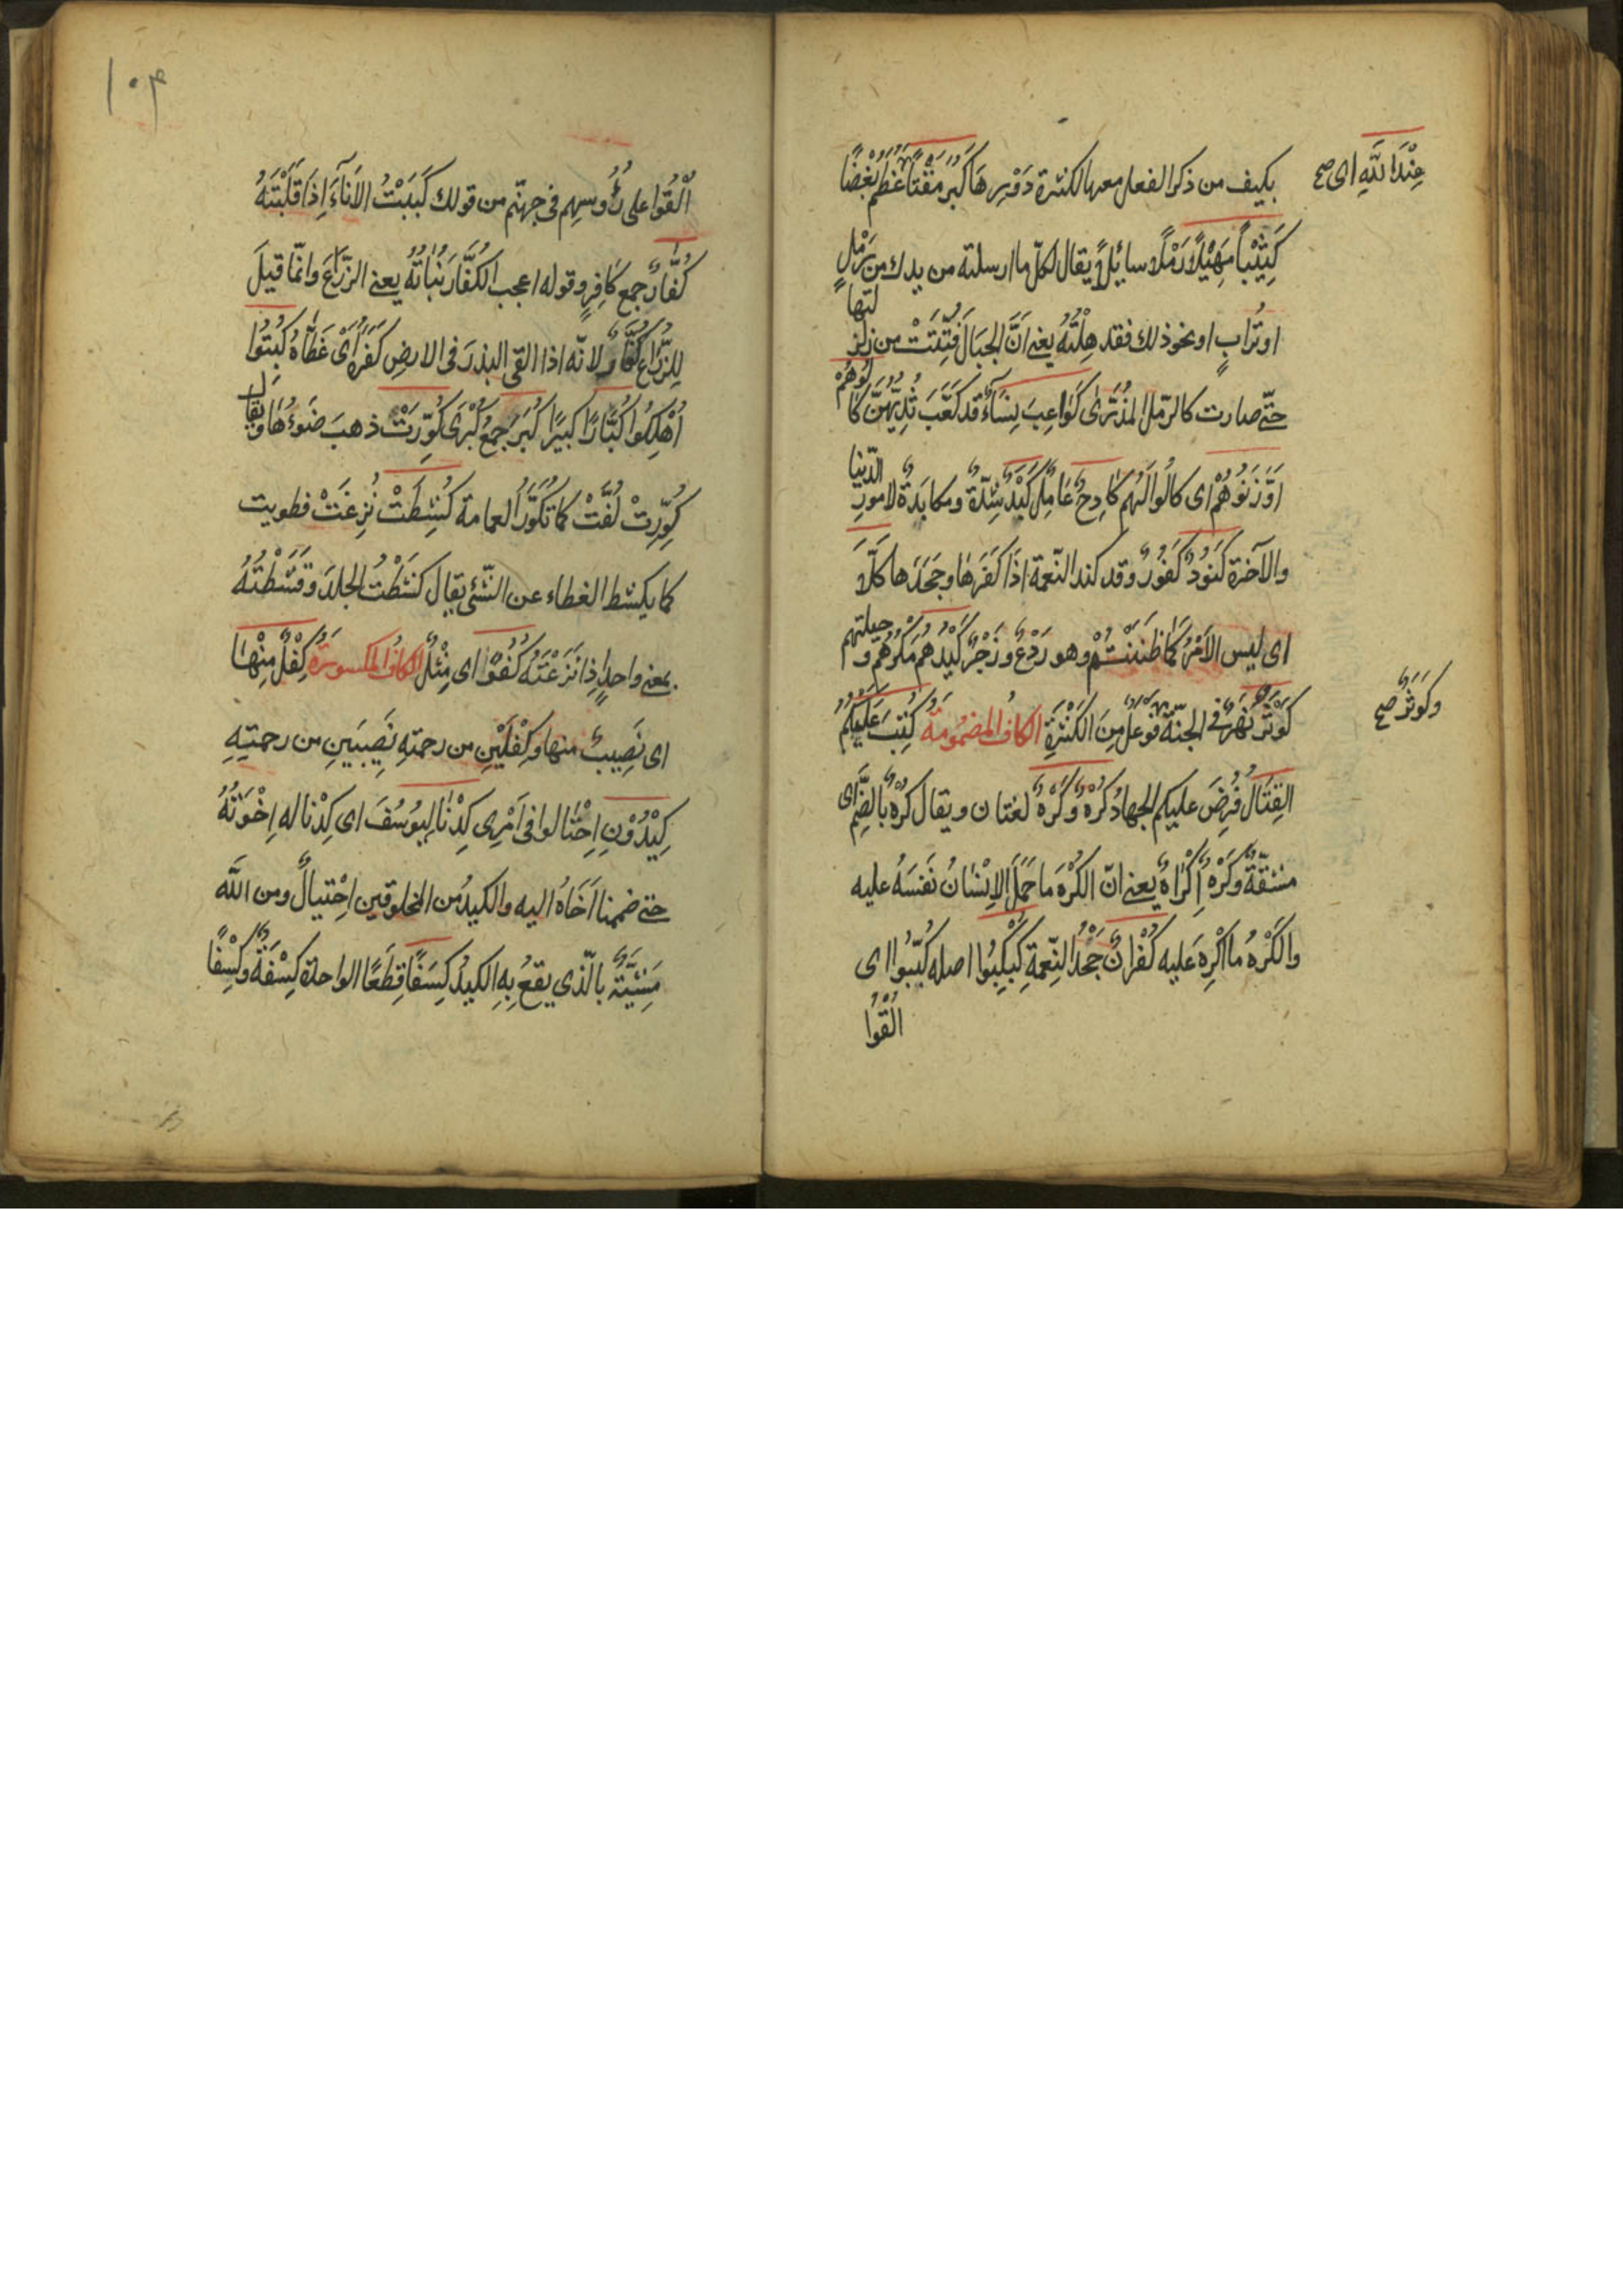 عِنْدَ اللّٰهِ اى صح
بكيف من ذكر الفعل معها لكثرة دَوْرِهَا كَبُرَ مَقْتًا عَظُمَ بُغْضًا
كَثِيْبًا مَهِيْلًا رَمْلًا سائِلًا يقال لكلّ ما ارسلته من يدك من رَمْلٍ
او تُرابٍ او نحو ذلك فقد هِلْتَهُ يعنى اَنَّ الجِبَالَ فُتِّتَتْ من زلز لتها
حتّى صارت كالرّمل المذرّى كَوَاعِبَ نِسَاءٌ قد كَعَّبَ ثُدِيُّهُنَّ كَا لُوْهُمْ
اَوْ وَزَنُوْهُمْ اى كالُوا لَهُم كَادِحٌ عَامِلٌ كَبَدٌ شِدّةٌ ومكابدَةٌ لامور الدّنيا
والآخرة كَنُوْدٌ كَفُوْرٌ وقد كند النّعمة اذَا كَفَرَها وجَحَدَها كَلَّا
اى ليس الاَمْرُ كَمَا ظَنَنْتُمْ وهو رَدْعٌ وزَجْرٌ كَيْدُهُمْ مَكْرُهُمْ و حيلتهم
وكَوْثَرٌ صح
كَوْثَرٌ نَهَرٌ فى الجنّة فَوْعَلٌ مِنَ الكَثْرَةِ الكافُ المضمُومَةُ كُتِبَ عَلَيْكُمُ
القِتَالُ فُرِضَ عليكم الجهادُ كُرْهٌ وَكَرْهٌ لغتان ويقال كُرْهٌ بالضَّمِّ اى
مشقّةٌ وكَرْهٌ اِكْرَاهٌ يعنى انّ الكُرْهَ ما حَمَلَ الاِنْسَانُ نَفْسَهُ عليه
والكَرْهُ ما اُكْرِهَ عَليه كُفْرَانٌ جَحْدُ النِّعمةِ كُبْكِبُوا اصله كُبِّبُوا اى
اُلْقُوا
١٠٤
اُلْقُوا على رُؤُوسِهِم فى جهنّم من قولك كَبَبْتُ الاِنآءَ اِذَا قَلَبْتَهُ
كُفَّارٌ جمع كَافِرٍ وقوله اعجب الكُفَّارَ نَبَاتُهُ يعنى الزرّاعَ وانّما قيلَ
لِلزُّرَّاعِ كُفَّارٌ لانّه اذا القى البذرَ فى الارضِ كَفَرَهُ اَىْ غَطَّاهُ كُبِتُوا
اُهْلِكُوا كُبَّارًا كبيرًا كُبَرَ جَمعُ كُبْرَى كُوِّرَتْ ذهبَ ضَوءُهَا ويقال
كُوِّرَتْ لُفَّتْ كما تُكَوَّرُ العمامة كُشِطَتْ نُزِعَتْ فطويت
كما يكشط الغطاء عن الشّئ يقال كشَطْتُ الجلدَ وقَشَطْتُهُ
بمعنى واحدٍ اِذا نَزَعْتَهُ كُفُوًا اى مِثْلٌ الكافُ المكسورَةُ كِفْلٌ مِنْهَا
اى نَصِيبٌ منها وكِفْلَيْنِ من رحمتِهِ نَصِيبَيْنِ من رحمتِهِ
كِيْدُوْنِ اِحْتَالوا فى اَمْرِى كِدْنَا لِيُوسُفَ اى كِدْنا له اِخْوَتُهُ
حتى ضممنا اَخَاهُ اليه والكيدُ من المخلوقين اِحْتِيالٌ ومن اللّٰه
مَشِيَّةٌ بالّذى يقعُ بِهِ الكيدُ كِسَفًا قِطَعًا الواحدة كِسْفَةٌ وكِسْفًا